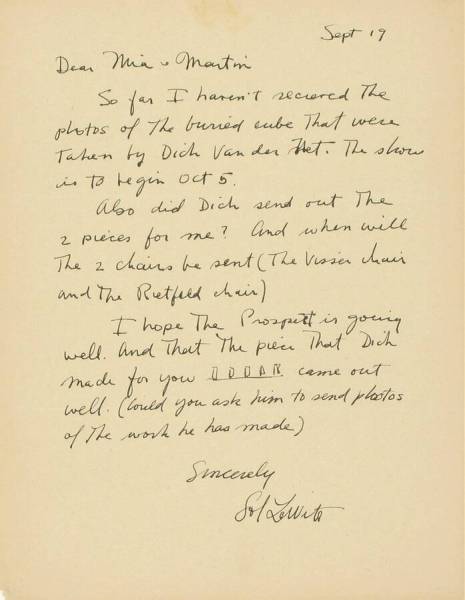 Sept 19
Dear Mia & Martin
So far I haven't recieved the
photos of the buried cube that were
taken by Dick Van der Net. The show
is to begin Oct 5.
Also did Dick send out the
2 pieces for me? And when will
the 2 chairs be sent (The Visser chair
and the Rietfeld chair)
I hope the Prospett is going
well. And that the piece that Dick
made for you came out
well. (Could you ask him to send photos
of the work he has made)
Sincerely
Sol LeWitt